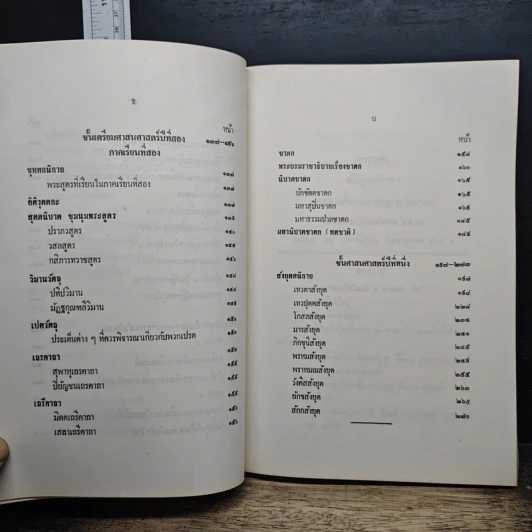 ช
หน้า
ชั้นเตรียมศาสนศาสตร์ปีที่สอง ๑๓๗-๑๕๖
ภาคเรียนที่สอง
ขุททกนิกาย ๑๓๗
พระสูตรที่เรียนในภาคเรียนที่สอง ๑๓๗
อิติวุตตกะ ๑๓๘
สุตตนิบาต ชุมนุมพระสูตร ๑๔๑
ปราภวสูตร
วสลสูตร
กสิภารทวาชสูตร
วิมานวัตถุ
ปีฐวิมาน
มัฏฐกุณฑลีวิมาน
เปตวัตถุ ๑๕๐
ประเด็นต่าง ๆ ที่ควรพิจารณาเกี่ยวกับพวกเปรต
เถรคาถา
สุพาหุเถรคาถา
ปิยัญชนเถรคาถา
เถรีคาถา
มิตตเถรีคาถา
เสลาเถรีคาถา
น
หน้า
ชาดก ๑๕๘
พระบรมราชาธิบายเรื่องชาดก ๑๖๐
นิบาตชาดก ๑๖๕
นักขัตตชาดก ๑๖๕
มหาสุบินชาดก
มหาธรรมปาลชาดก ๑๘๕
มหานิบาตชาดก (ทศชาติ)
ชั้นศาสนศาสตร์ปีที่หนึ่ง ๑๙๗-๒๗๓
สังยุตตนิกาย ๑๙๗
เทวตาสังยุต ๑๙๘
เทวปุตตสังยุต ๒๒๘
โกสลสังยุต
มารสังยุต
ภิกขุนีสังยุต ๒๔๕
พรหมสังยุต
พราหมณสังยุต ๒๕๕
วังคีสสังยุต ๒๖๓
ยักขสังยุต ๒๖๕
สักกสังยุต ๒๗๐